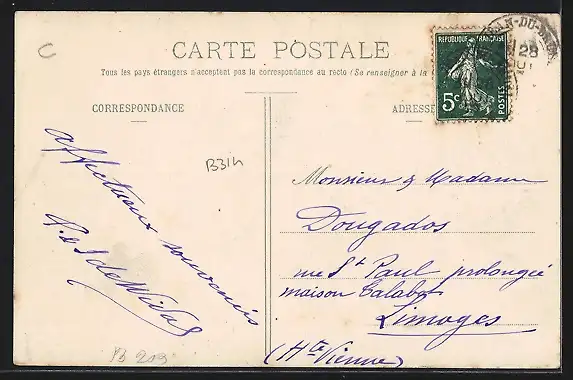 C
CARTE POSTALE
Tous les pays étrangers n'acceptent pas la correspondance au recto (Se renseigner à la
CORRESPONDANCE
ADRESSE
REPUBLIQUE FRANÇAISE
5c
POSTES
28
B314
affectueux souvenirs
Monsieur & Madame
Dougados
rue St Paul prolongée
maison Calabo
Limoges
(Hte Vienne)
PB 203